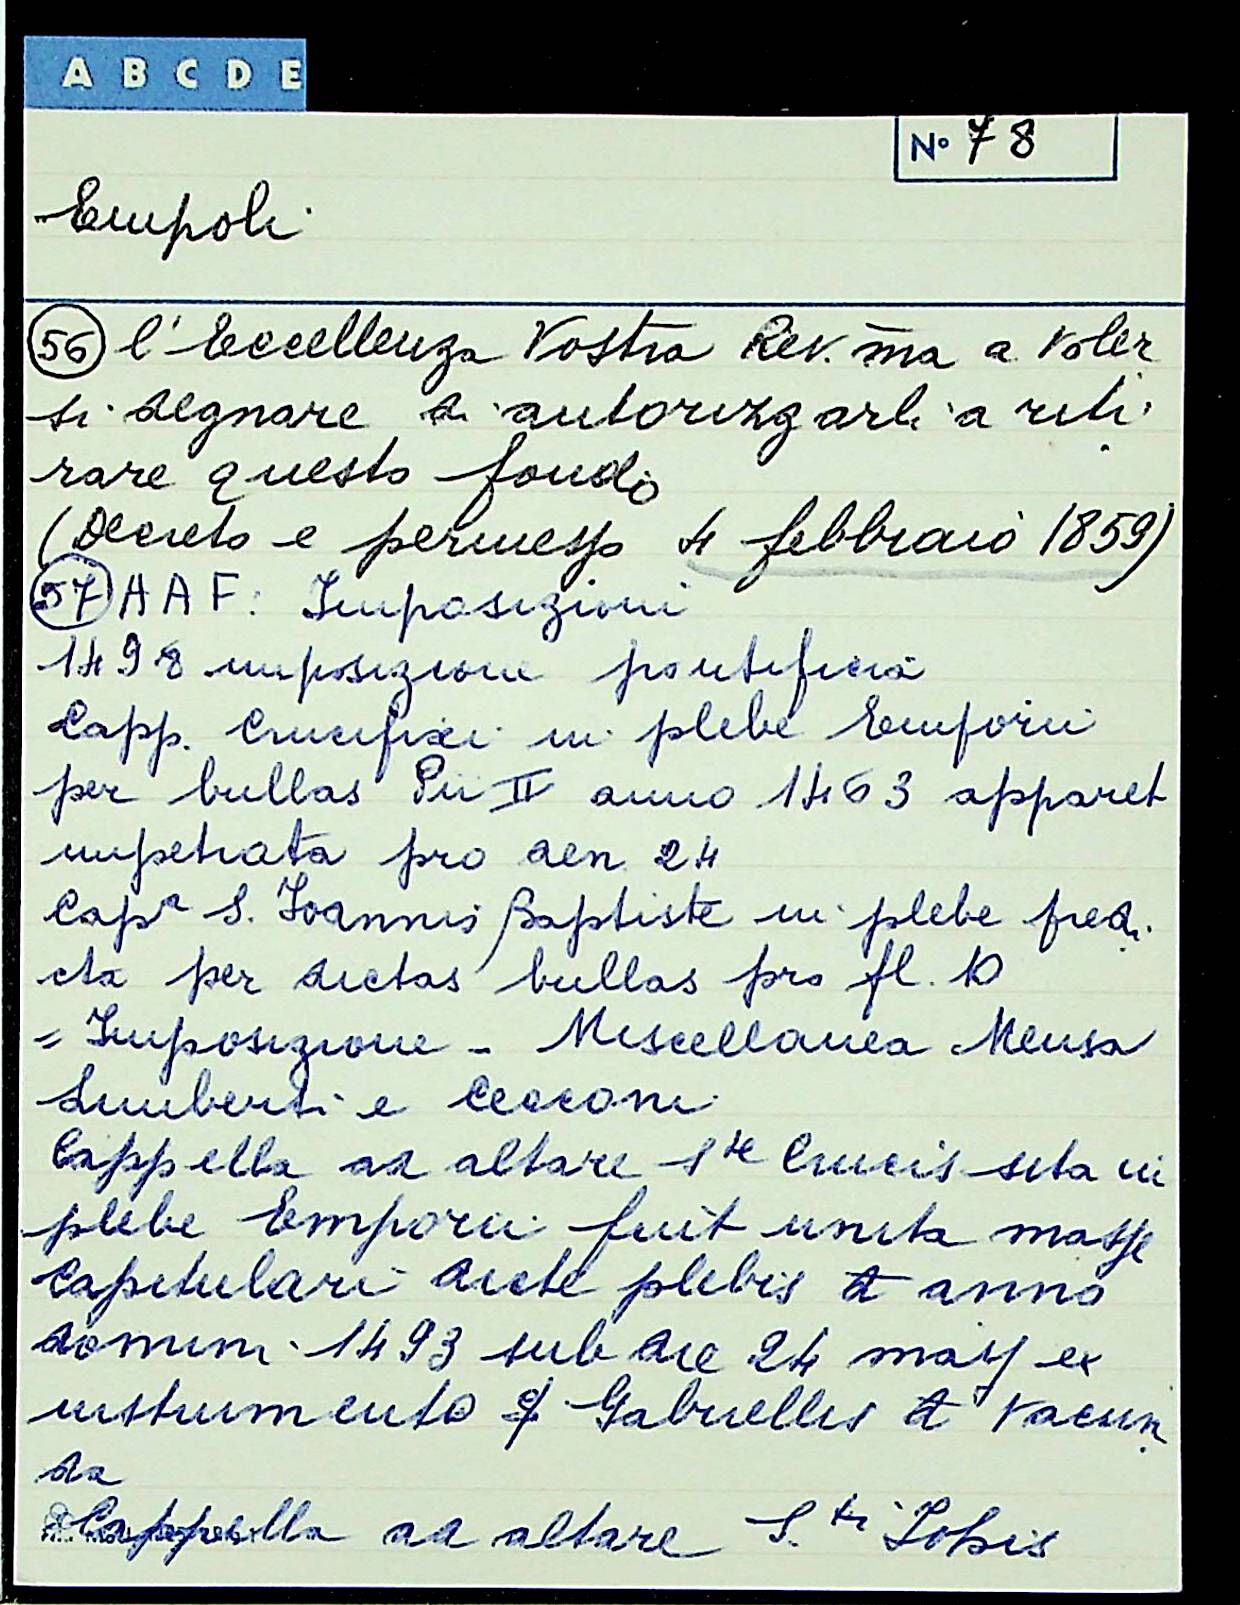 A B C D E
N° 78
Empoli
56 l'Eccellenza Vostra Rev.ma a voler
si degnare di autorizzarli a riti
rare questo fondo
(Decreto e permesso 4 febbraio 1859)
57 A A F: Imposizioni
1498 imposizione pontificia
Capp. Crucifixi in plebe Emporii
per bullas Pii II anno 1463 apparet
impetrata pro den 24
Capa S. Joannis Baptiste in plebe predi
cta per dictas bullas pro fl. 10
= Imposizione - Miscellanea Mensa
Limberti e Cecconi
Cappella ad altare Ste Crucis sita in
plebe Emporii fuit unita masse
Capitulari dicte plebis A anno
domini 1493 sub die 24 maij ex
instrumento Gabriellis A Vacun
da
Cappella ad altare S.ti Johis